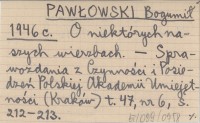 PAWŁOWSKI Bogumił
1946 c. O niektórych na-
szych wierzbach. — Spra-
wozdania z Czynności i Posie-
dzeń Polskiej Akademii Umiejęt-
ności (Kraków) t. 47, nr 6, s.
212-213.